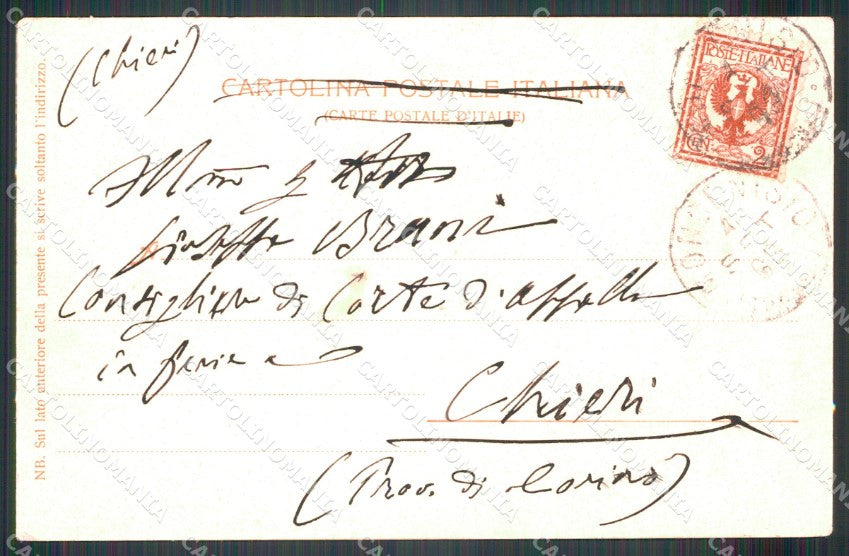 (Chieri)
CARTOLINA POSTALE ITALIANA
(CARTE POSTALE D'ITALIE)
POSTE ITALIANE
CEN 2
Illmo
Giuseppe Brani
Consigliere di Corte d'Appello
in ferie a
Chieri
(Prov. di Torino)
NB. Sul lato anteriore della presente si scrive soltanto l'indirizzo.
CARTOLINOMANIA